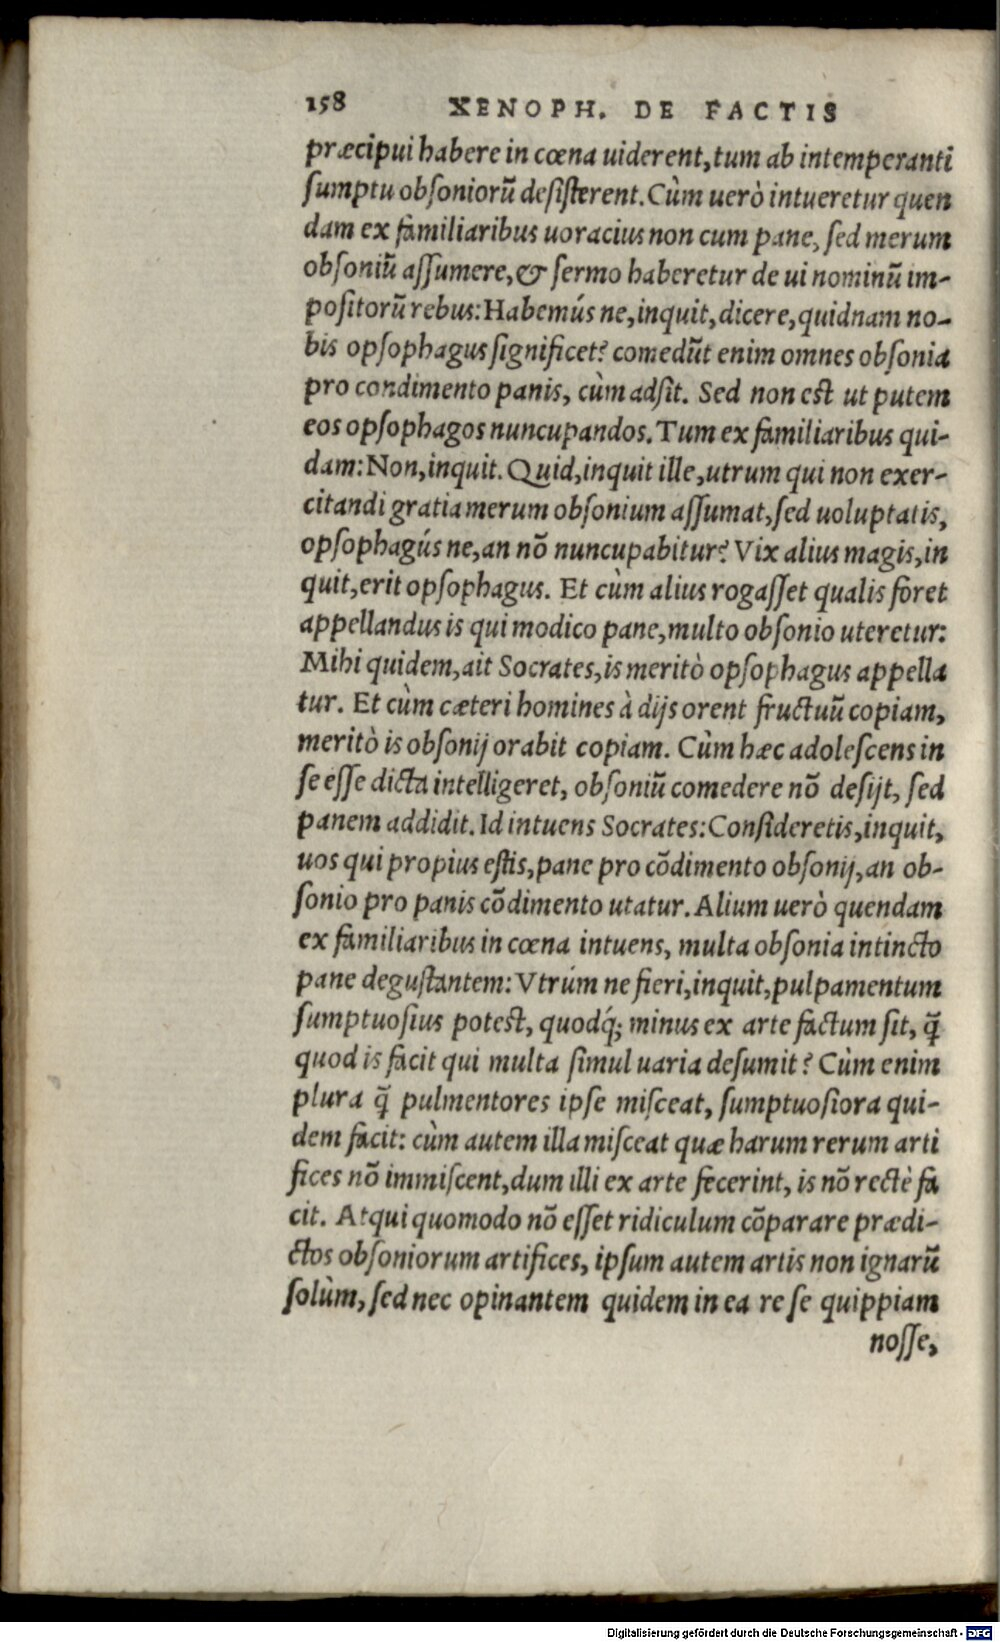 158 XENOPH. DE FACTIS
præcipui habere in cœna uiderent, tum ab intemperanti
ſumptu obſoniorū deſiſterent. Cùm uerò intueretur quen
dam ex familiaribus uoracius non cum pane, ſed merum
obſoniū aſſumere, & ſermo haberetur de ui nominū im-
poſitorū rebus: Habemús ne, inquit, dicere, quidnam no-
bis opſophagus ſignificet? comedūt enim omnes obſonia
pro condimento panis, cùm adſit. Sed non est ut putem
eos opſophagos nuncupandos. Tum ex familiaribus qui-
dam: Non, inquit. Quid, inquit ille, utrum qui non exer-
citandi gratia merum obſonium aſſumat, ſed uoluptatis,
opſophagús ne, an nō nuncupabitur? Vix alius magis, in
quit, erit opſophagus. Et cùm alius rogaſſet qualis foret
appellandus is qui modico pane, multo obſonio uteretur:
Mihi quidem, ait Socrates, is meritò opſophagus appella
tur. Et cùm cæteri homines à dijs orent fructuū copiam,
meritò is obſonij orabit copiam. Cùm hæc adoleſcens in
ſe eſſe dicta intelligeret, obſoniū comedere nō deſijt, ſed
panem addidit. Id intuens Socrates: Conſideretis, inquit,
uos qui propius eſtis, pane pro cōdimento obſonij, an ob-
ſonio pro panis cōdimento utatur. Alium uerò quendam
ex familiaribus in cœna intuens, multa obſonia intincto
pane deguſtantem: Vtrúm ne fieri, inquit, pulpamentum
ſumptuoſius potest, quodq́; minus ex arte factum ſit, q̄
quod is facit qui multa ſimul uaria deſumit? Cùm enim
plura q̄ pulmentores ipſe miſceat, ſumptuoſiora qui-
dem facit: cùm autem illa miſceat quæ harum rerum arti
fices nō immiſcent, dum illi ex arte fecerint, is nō rectè fa
cit. Atqui quomodo nō eſſet ridiculum cōparare prædi-
ctos obſoniorum artifices, ipſum autem artis non ignarū
ſolùm, ſed nec opinantem quidem in ea re ſe quippiam
noſſe,
Digitalisierung gefördert durch die Deutsche Forschungsgemeinschaft - DFG